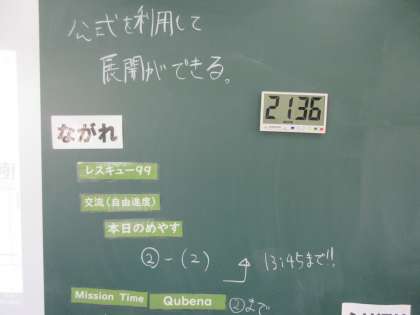 公式を利用して
展開ができる。
21:36
ながれ
レスキュー99
交流(自由進度)
本日のめやす
②-(2) 13:45まで!!
Mission Time Qubena ②まで